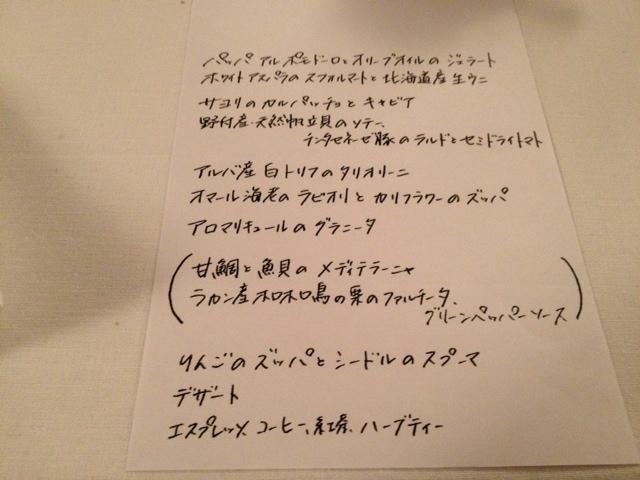 パッパ アル ポモドーロとオリーブオイルの ジェラート
ホワイトアスパラのスフォルマートと北海道産生ウニ
サヨリのカルパッチョと キャビア
野付産天然帆立貝のソテー、
チンタセネーゼ豚のラルドとセミドライトマト
アルバ産 白トリフのタリオリーニ
オマール海老のラビオリとカリフラワーのズッパ
アロマリキュールのグラニータ
(甘鯛と魚貝の メディテラーニャ
ラカン産ホロホロ鳥の栗のファルチータ、
グリーンペッパーソース)
りんごのズッパとシードルのスプーマ
デザート
エスプレッソ、コーヒー、紅茶、ハーブティー